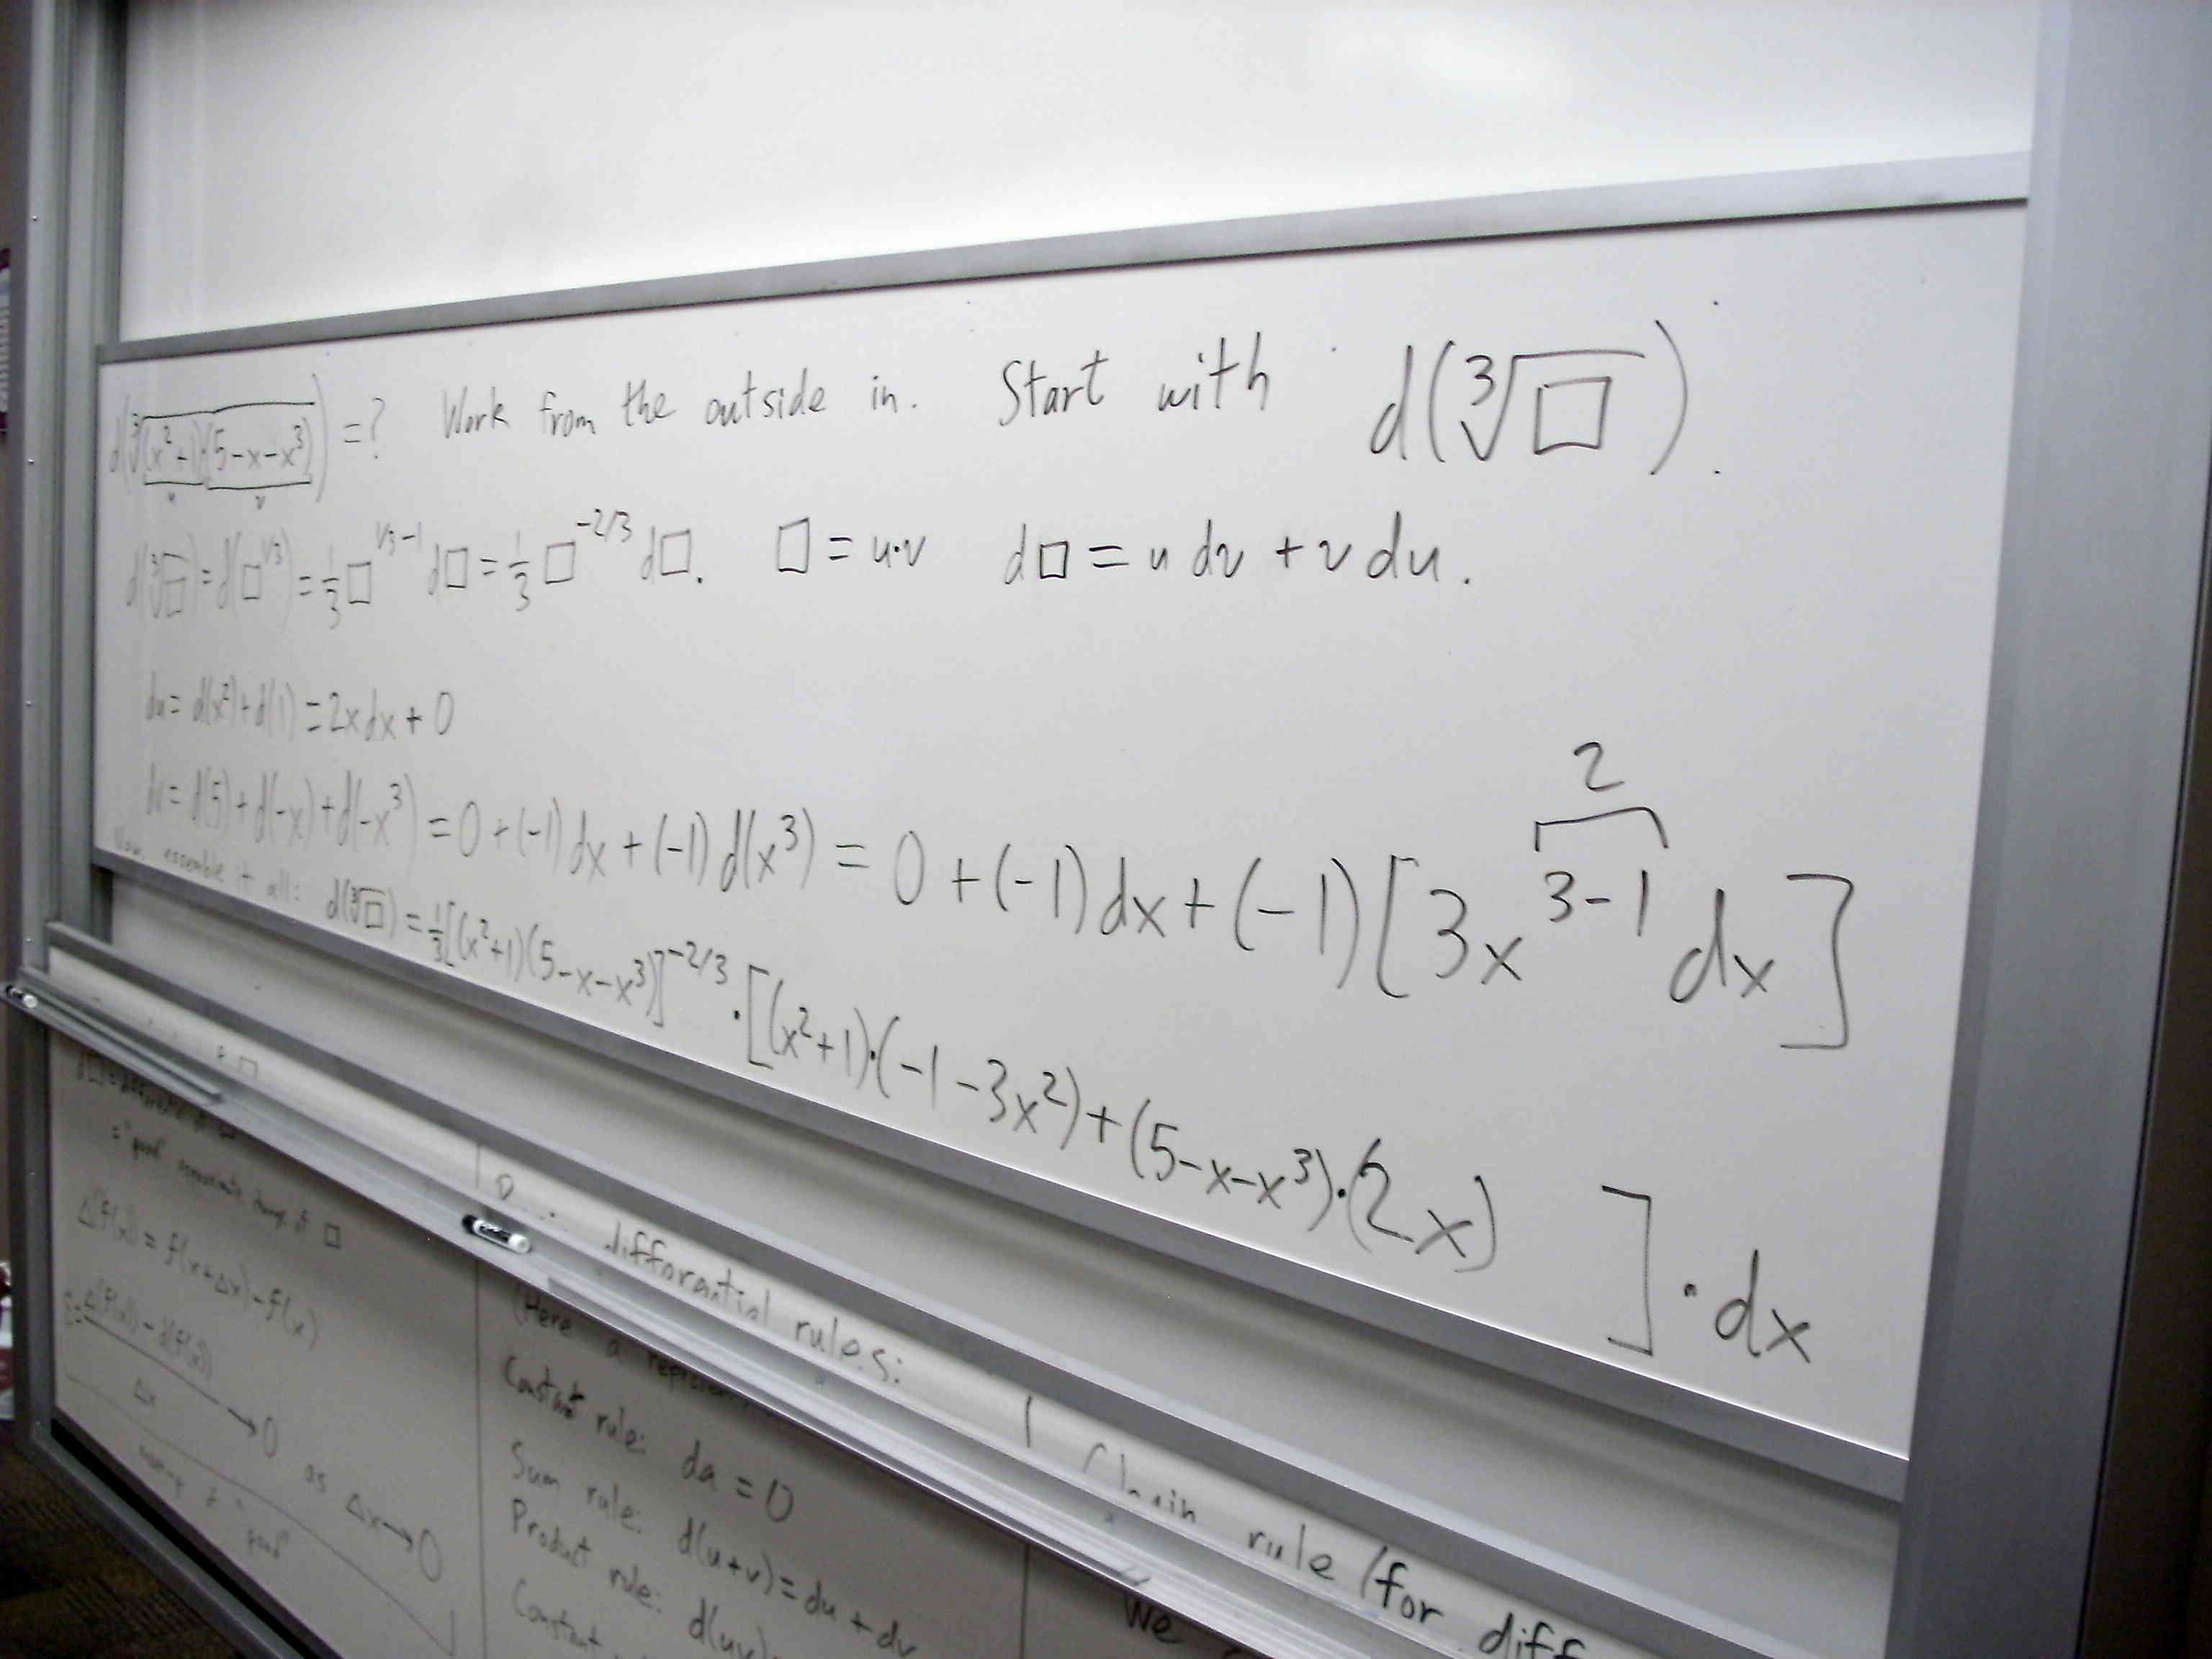 d(∛((x²+1)·(5-x-x³))) = ? Work from the outside in. Start with d(∛□).
u v
d(∛□) = d(□^(1/3)) = 1/3 □^(1/3-1) d□ = 1/3 □^(-2/3) d□. □ = u·v d□ = u dv + v du.
du = d(x²) + d(1) = 2x dx + 0
2
dv = d(5) + d(-x) + d(-x³) = 0 + (-1) dx + (-1) d(x³) = 0 + (-1) dx + (-1) [3x^(3-1) dx]
Now assemble it all: d(∛□) = 1/3 [(x²+1)(5-x-x³)]^(-2/3) · [(x²+1)·(-1-3x²) + (5-x-x³)·(2x)] · dx
= "good" approximate change of □
Δ(f(x)) = f(x+Δx) - f(x)
Δ(f(x)) - d(f(x))
Δx
→ 0 as Δx → 0
"good"
differential rules:
(Here a
Constant rule: da = 0
Sum rule: d(u+v) = du + dv
Product rule: d(uv)
Constant
Chain rule (for diff
We